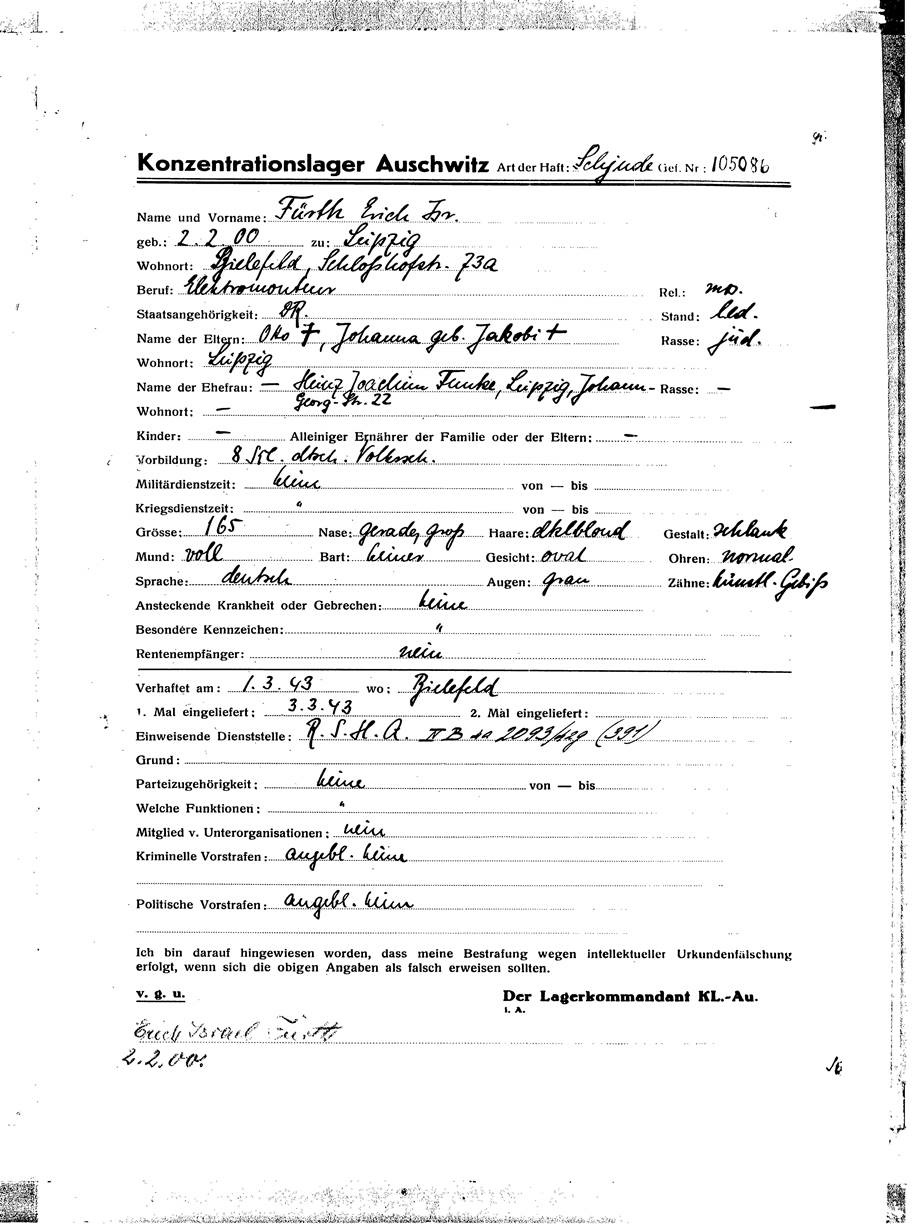 Konzentrationslager Auschwitz Art der Haft: Schjude Gef. Nr.: 105086
Name und Vorname: Fürth Erich Isr.
geb.: 2.2.00 zu: Leipzig
Wohnort: Bielefeld, Schloßhofstr. 73a
Beruf: Elektromonteur Rel.: mos.
Staatsangehörigkeit: DR. Stand: led.
Name der Eltern: Otto †, Johanna geb. Jakobi † Rasse: jüd.
Wohnort: Leipzig
Name der Ehefrau: — Heinz Joachim Funke, Leipzig, Johann- Rasse: —
Georg-Str. 22
Wohnort: —
Kinder: — Alleiniger Ernährer der Familie oder der Eltern: —
Vorbildung: 8 Kl. dtsch. Volkssch.
Militärdienstzeit: keine von — bis
Kriegsdienstzeit: " von — bis
Grösse: 165 Nase: gerade, groß Haare: dklblond Gestalt: schlank
Mund: voll Bart: keiner Gesicht: oval Ohren: normal
Sprache: deutsch Augen: grau Zähne: künstl. Gebiß
Ansteckende Krankheit oder Gebrechen: keine
Besondere Kennzeichen: "
Rentenempfänger: nein
Verhaftet am: 1.3.43 wo: Bielefeld
1. Mal eingeliefert: 3.3.43 2. Mal eingeliefert:
Einweisende Dienststelle: R.S.H.A. 2093/ (391)
Grund:
Parteizugehörigkeit: keine von — bis
Welche Funktionen: "
Mitglied v. Unterorganisationen: nein
Kriminelle Vorstrafen: angebl. keine
Politische Vorstrafen: angebl. keine
Ich bin darauf hingewiesen worden, dass meine Bestrafung wegen intellektueller Urkundenfälschung
erfolgt, wenn sich die obigen Angaben als falsch erweisen sollten.
v. g. u. Der Lagerkommandant KL.-Au.
I. A.
Erich Israel Fürth
2.2.00.